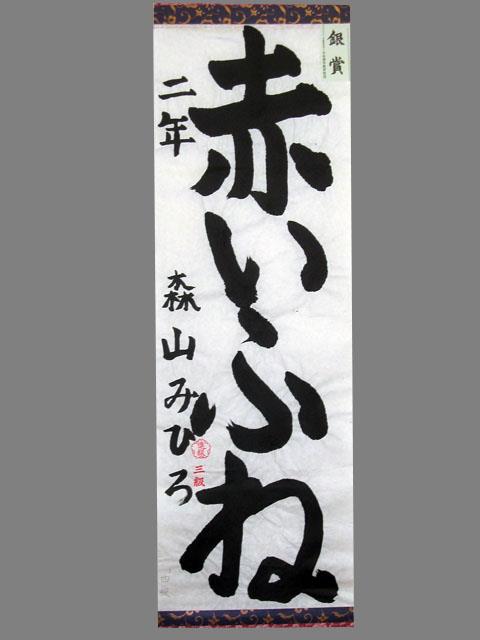 銀賞
赤いふね
二年 森山みひろ
三級